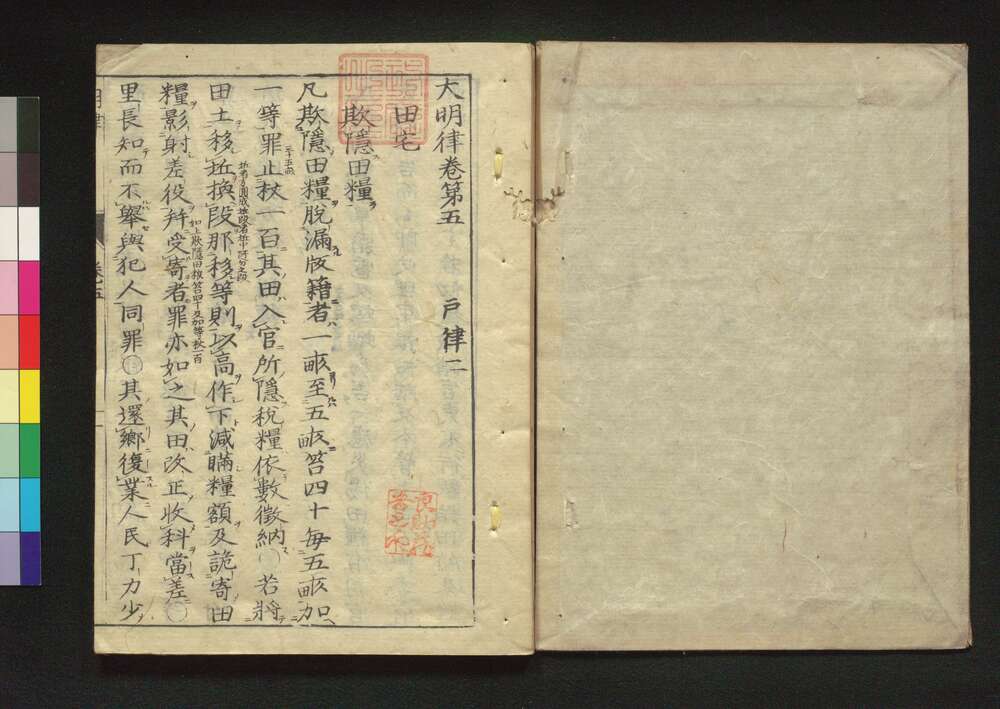 大明律卷第五　戶律二
田宅
欺隱田糧
凡欺隱田糧脫漏版籍者一畝至五畝笞四十每五畝加
一等罪止杖一百其田入官所隱稅糧依數徵納〇若將
田土移坵換段那移等則以高作下減瞞糧額及詭寄田
糧影射差役并受寄者罪亦如之其田改正收科當差〇
里長知而不舉與犯人同罪〇其還鄉復業人民丁力少